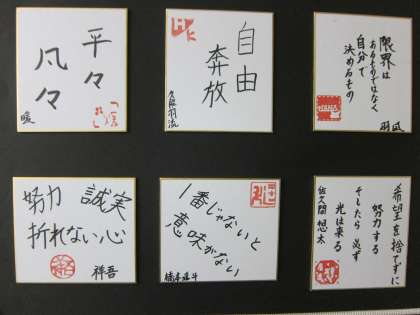 平々
凡々
暖
自由
奔放
久保羽流
限界は
あるものではなく
自分で
決めるもの
羽凪
努力 誠実
折れない心
祥吾
1番じゃないと
意味がない
希望を捨てずに
努力する
そしたら必ず
光は来る
佐久間 悠太